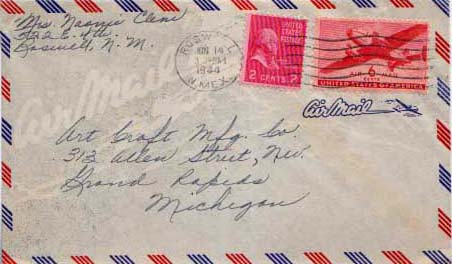 Mrs. Naomi Clem
322 E. 4th.
Roswell, N. M.
ROSWELL
14
1944
N. MEX.
UNITED STATES POSTAGE
2 CENTS 2
AIR 6 MAIL
CENTS
UNITED STATES OF AMERICA
Air Mail
Air Mail
Art Craft Mfg. Co.
313 Allen Street, N.W.
Grand Rapids
Michigan